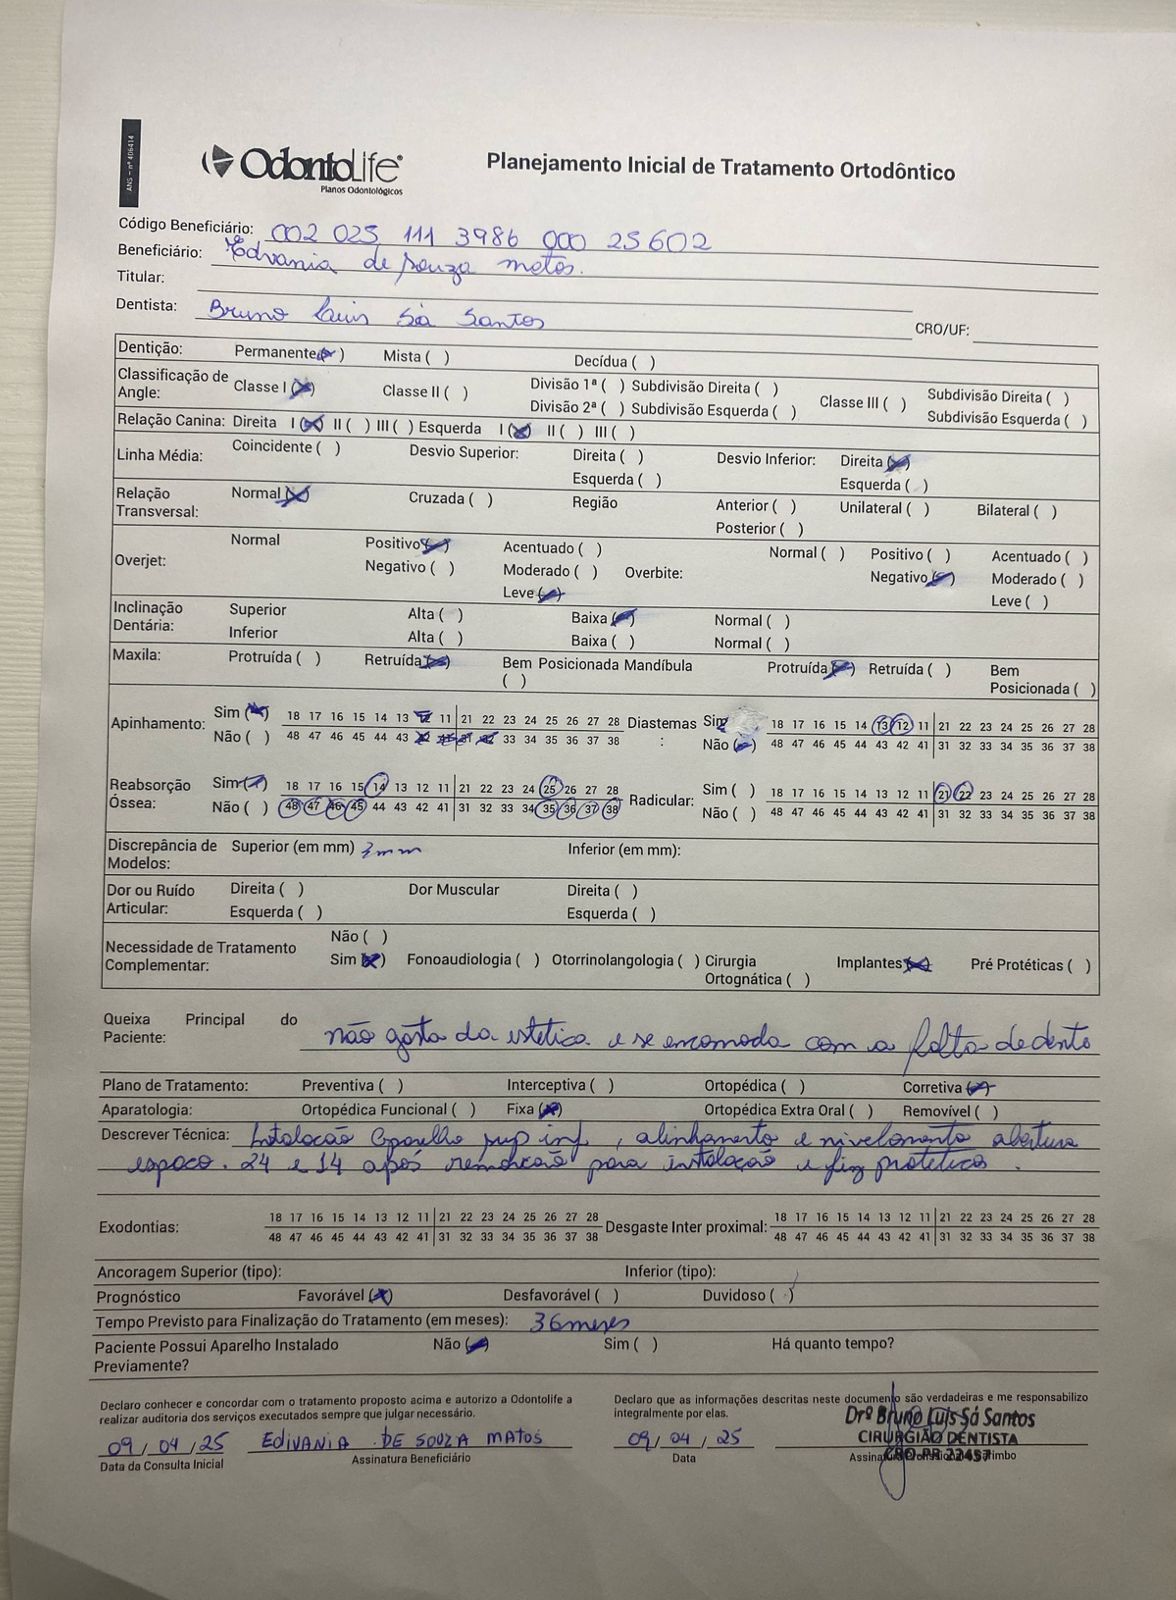 ANS – nº 406414
OdontoLife®
Planos Odontológicos
Planejamento Inicial de Tratamento Ortodôntico
Código Beneficiário: 002 025 111 3986 000 25602
Beneficiário: Edvania de souza matos.
Titular:
Dentista: Bruno Luis Sá Santos CRO/UF:
Dentição: Permanente(x) Mista ( ) Decídua ( )
Classificação de Angle: Classe I (x) Classe II ( ) Divisão 1ª ( ) Subdivisão Direita ( ) Classe III ( ) Subdivisão Direita ( )
Divisão 2ª ( ) Subdivisão Esquerda ( ) Subdivisão Esquerda ( )
Relação Canina: Direita I (x) II ( ) III ( ) Esquerda I (x) II ( ) III ( )
Linha Média: Coincidente ( ) Desvio Superior: Direita ( ) Desvio Inferior: Direita (x)
Esquerda ( ) Esquerda ( )
Relação Transversal: Normal (x) Cruzada ( ) Região Anterior ( ) Unilateral ( ) Bilateral ( )
Posterior ( )
Overjet: Normal Positivo (x) Acentuado ( ) Overbite: Normal ( ) Positivo ( ) Acentuado ( )
Negativo ( ) Moderado ( ) Negativo (x) Moderado ( )
Leve (x) Leve ( )
Inclinação Dentária: Superior Alta ( ) Baixa (x) Normal ( )
Inferior Alta ( ) Baixa ( ) Normal ( )
Maxila: Protruída ( ) Retruída (x) Bem Posicionada ( ) Mandíbula Protruída (x) Retruída ( ) Bem Posicionada ( )
Apinhamento: Sim (x) 18 17 16 15 14 13 12 11 21 22 23 24 25 26 27 28 Diastemas: Sim 18 17 16 15 14 13 12 11 21 22 23 24 25 26 27 28
Não ( ) 48 47 46 45 44 43 42 41 31 32 33 34 35 36 37 38 Não (x) 48 47 46 45 44 43 42 41 31 32 33 34 35 36 37 38
Reabsorção Óssea: Sim (x) 18 17 16 15 14 13 12 11 21 22 23 24 25 26 27 28 Radicular: Sim ( ) 18 17 16 15 14 13 12 11 21 22 23 24 25 26 27 28
Não ( ) 48 47 46 45 44 43 42 41 31 32 33 34 35 36 37 38 Não ( ) 48 47 46 45 44 43 42 41 31 32 33 34 35 36 37 38
Discrepância de Modelos: Superior (em mm) 3mm Inferior (em mm):
Dor ou Ruído Articular: Direita ( ) Dor Muscular Direita ( )
Esquerda ( ) Esquerda ( )
Necessidade de Tratamento Complementar: Não ( )
Sim (x) Fonoaudiologia ( ) Otorrinolangologia ( ) Cirurgia Ortognática ( ) Implantes (x) Pré Protéticas ( )
Queixa Principal do Paciente: não gosta da estetica e se encomoda com a falta de dente
Plano de Tratamento: Preventiva ( ) Interceptiva ( ) Ortopédica ( ) Corretiva (x)
Aparatologia: Ortopédica Funcional ( ) Fixa (x) Ortopédica Extra Oral ( ) Removível ( )
Descrever Técnica: Instalação Aparelho sup inf, alinhamento e nivelamento abertura
espaço. 24 e 14 após para instalação e proteticos.
Exodontias: 18 17 16 15 14 13 12 11 21 22 23 24 25 26 27 28 Desgaste Inter proximal: 18 17 16 15 14 13 12 11 21 22 23 24 25 26 27 28
48 47 46 45 44 43 42 41 31 32 33 34 35 36 37 38 48 47 46 45 44 43 42 41 31 32 33 34 35 36 37 38
Ancoragem Superior (tipo): Inferior (tipo):
Prognóstico Favorável (x) Desfavorável ( ) Duvidoso ( )
Tempo Previsto para Finalização do Tratamento (em meses): 36 meses
Paciente Possui Aparelho Instalado Previamente? Não (x) Sim ( ) Há quanto tempo?
Declaro conhecer e concordar com o tratamento proposto acima e autorizo a Odontolife a
realizar auditoria dos serviços executados sempre que julgar necessário.
09/04/25 EDIVANIA DE SOUZA MATOS
Data da Consulta Inicial Assinatura Beneficiário
Declaro que as informações descritas neste documento são verdadeiras e me responsabilizo
integralmente por elas.
09/04/25
Data
Drº Bruno Luis Sá Santos
CIRURGIÃO DENTISTA
CRO-PR 22457